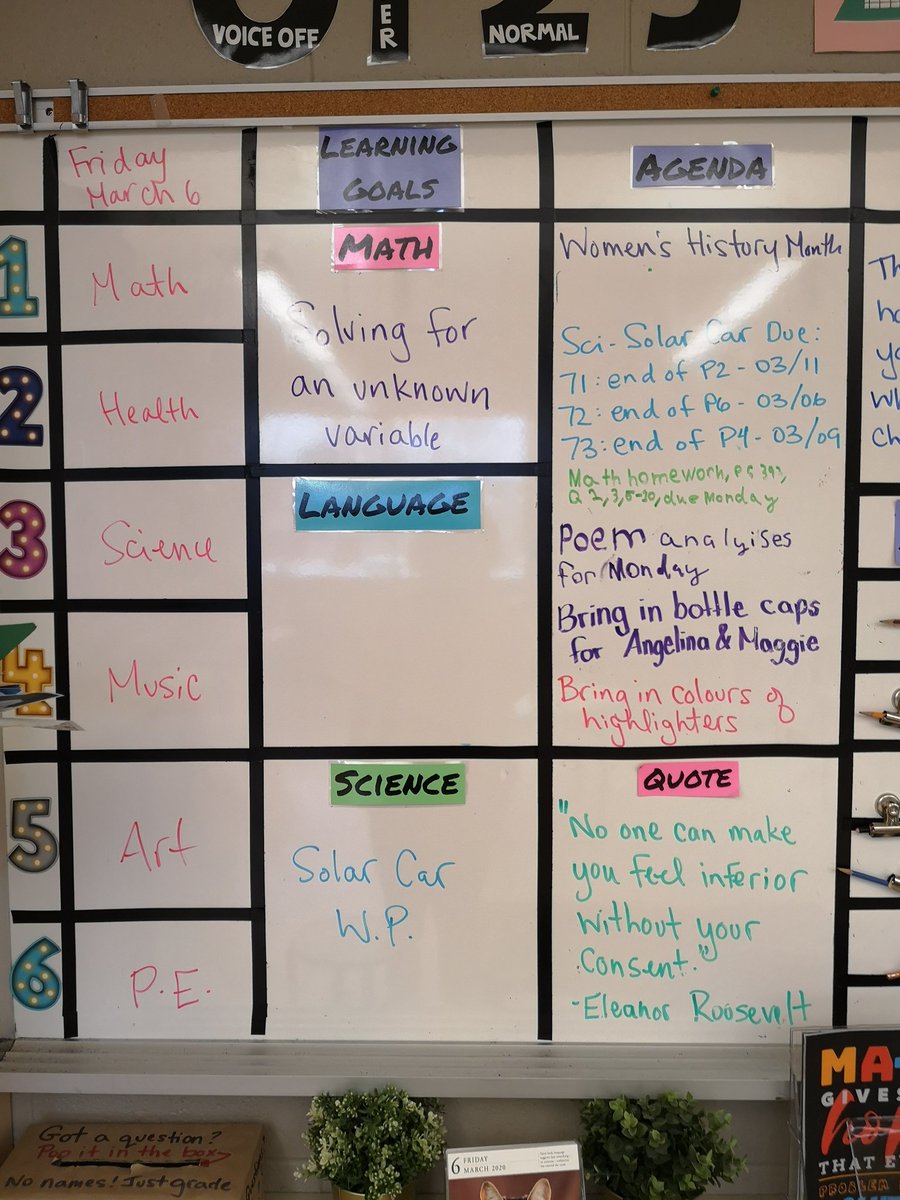 VOICE OFF
ER
NORMAL
Friday
March 6
LEARNING
GOALS
AGENDA
1
Math
2
Health
3
Science
4
Music
5
Art
6
P.E.
MATH
Solving for
an unknown
variable
LANGUAGE
SCIENCE
Solar Car
W.P.
Women's History Month
Sci-Solar Car Due:
71: end of P2 - 03/11
72: end of P6 - 03/06
73: end of P4 - 03/09
Math homework, PG 392,
Q 2,3,5-20, due Monday
Poem analyises
for Monday
Bring in bottle caps
for Angelina & Maggie
Bring in colours of
highlighters
QUOTE
"No one can make
you feel inferior
without your
Consent."
-Eleanor Roosevelt
Th
ha
yo
wh
ch
Got a question?
Pop it in the box
No names! Just grade
6 FRIDAY
MARCH 2020
MA
GIVES
hop
THAT E
PROBLEM